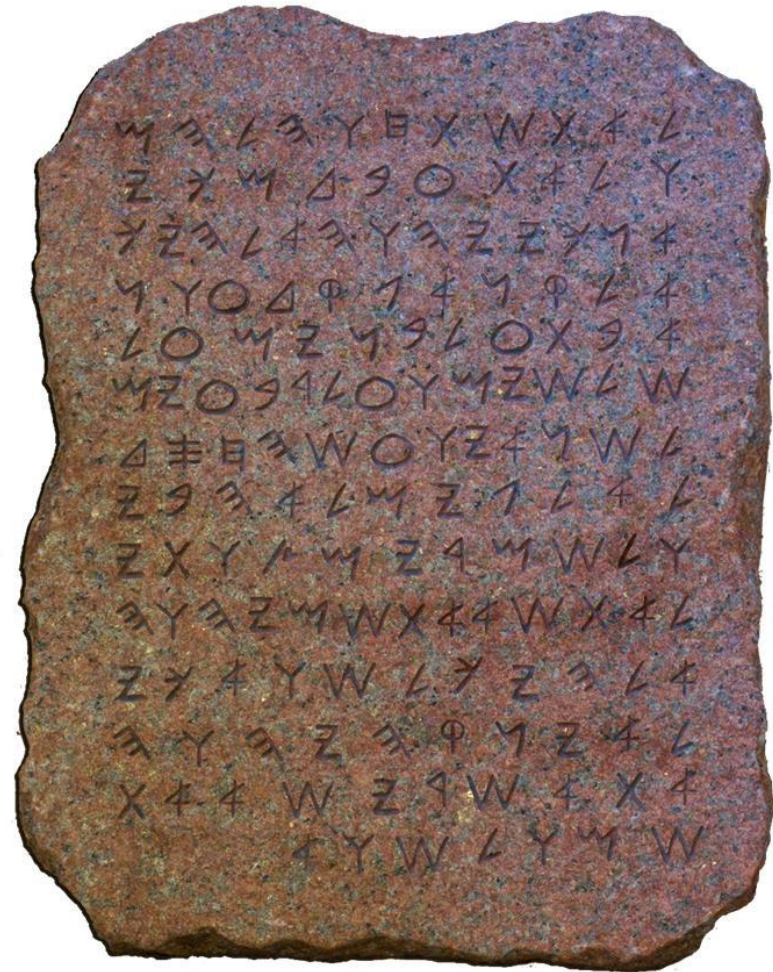 𐤋𐤀𐤕𐤔𐤕𐤇𐤅𐤄𐤋𐤄𐤌
𐤅𐤋𐤀𐤕𐤏𐤁𐤃𐤌𐤊𐤉
𐤀𐤍𐤊𐤉𐤉𐤄𐤅𐤄𐤀𐤋𐤄𐤉𐤊
𐤀𐤋𐤒𐤍𐤀𐤐𐤒𐤃𐤏𐤅𐤍
𐤀𐤁𐤕𐤏𐤋𐤁𐤍𐤉𐤌𐤏𐤋
𐤔𐤋𐤔𐤉𐤌𐤅𐤏𐤋𐤓𐤁𐤏𐤉𐤌
𐤋𐤔𐤍𐤀𐤉𐤅𐤏𐤔𐤄𐤇𐤎𐤃
𐤋𐤀𐤋𐤐𐤉𐤌𐤋𐤀𐤄𐤁𐤉
𐤅𐤋𐤔𐤌𐤓𐤉𐤌𐤑𐤅𐤕𐤉
𐤋𐤀𐤕𐤔𐤀𐤀𐤕𐤔𐤌𐤉𐤄𐤅𐤄
𐤀𐤋𐤄𐤉𐤊𐤋𐤔𐤅𐤀𐤊𐤉
𐤋𐤀𐤉𐤍𐤒𐤄𐤉𐤄𐤅𐤄
𐤀𐤕𐤀𐤔𐤓𐤉𐤔𐤀𐤀𐤕
𐤔𐤌𐤅𐤋𐤔𐤅𐤀